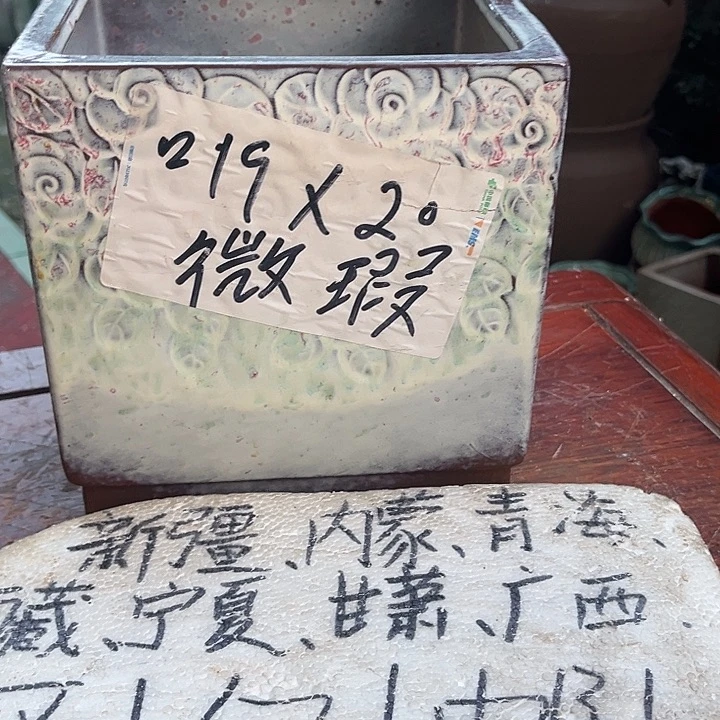 口19×20
微瑕
新疆、内蒙、青海、
藏、宁夏、甘肃、广西、